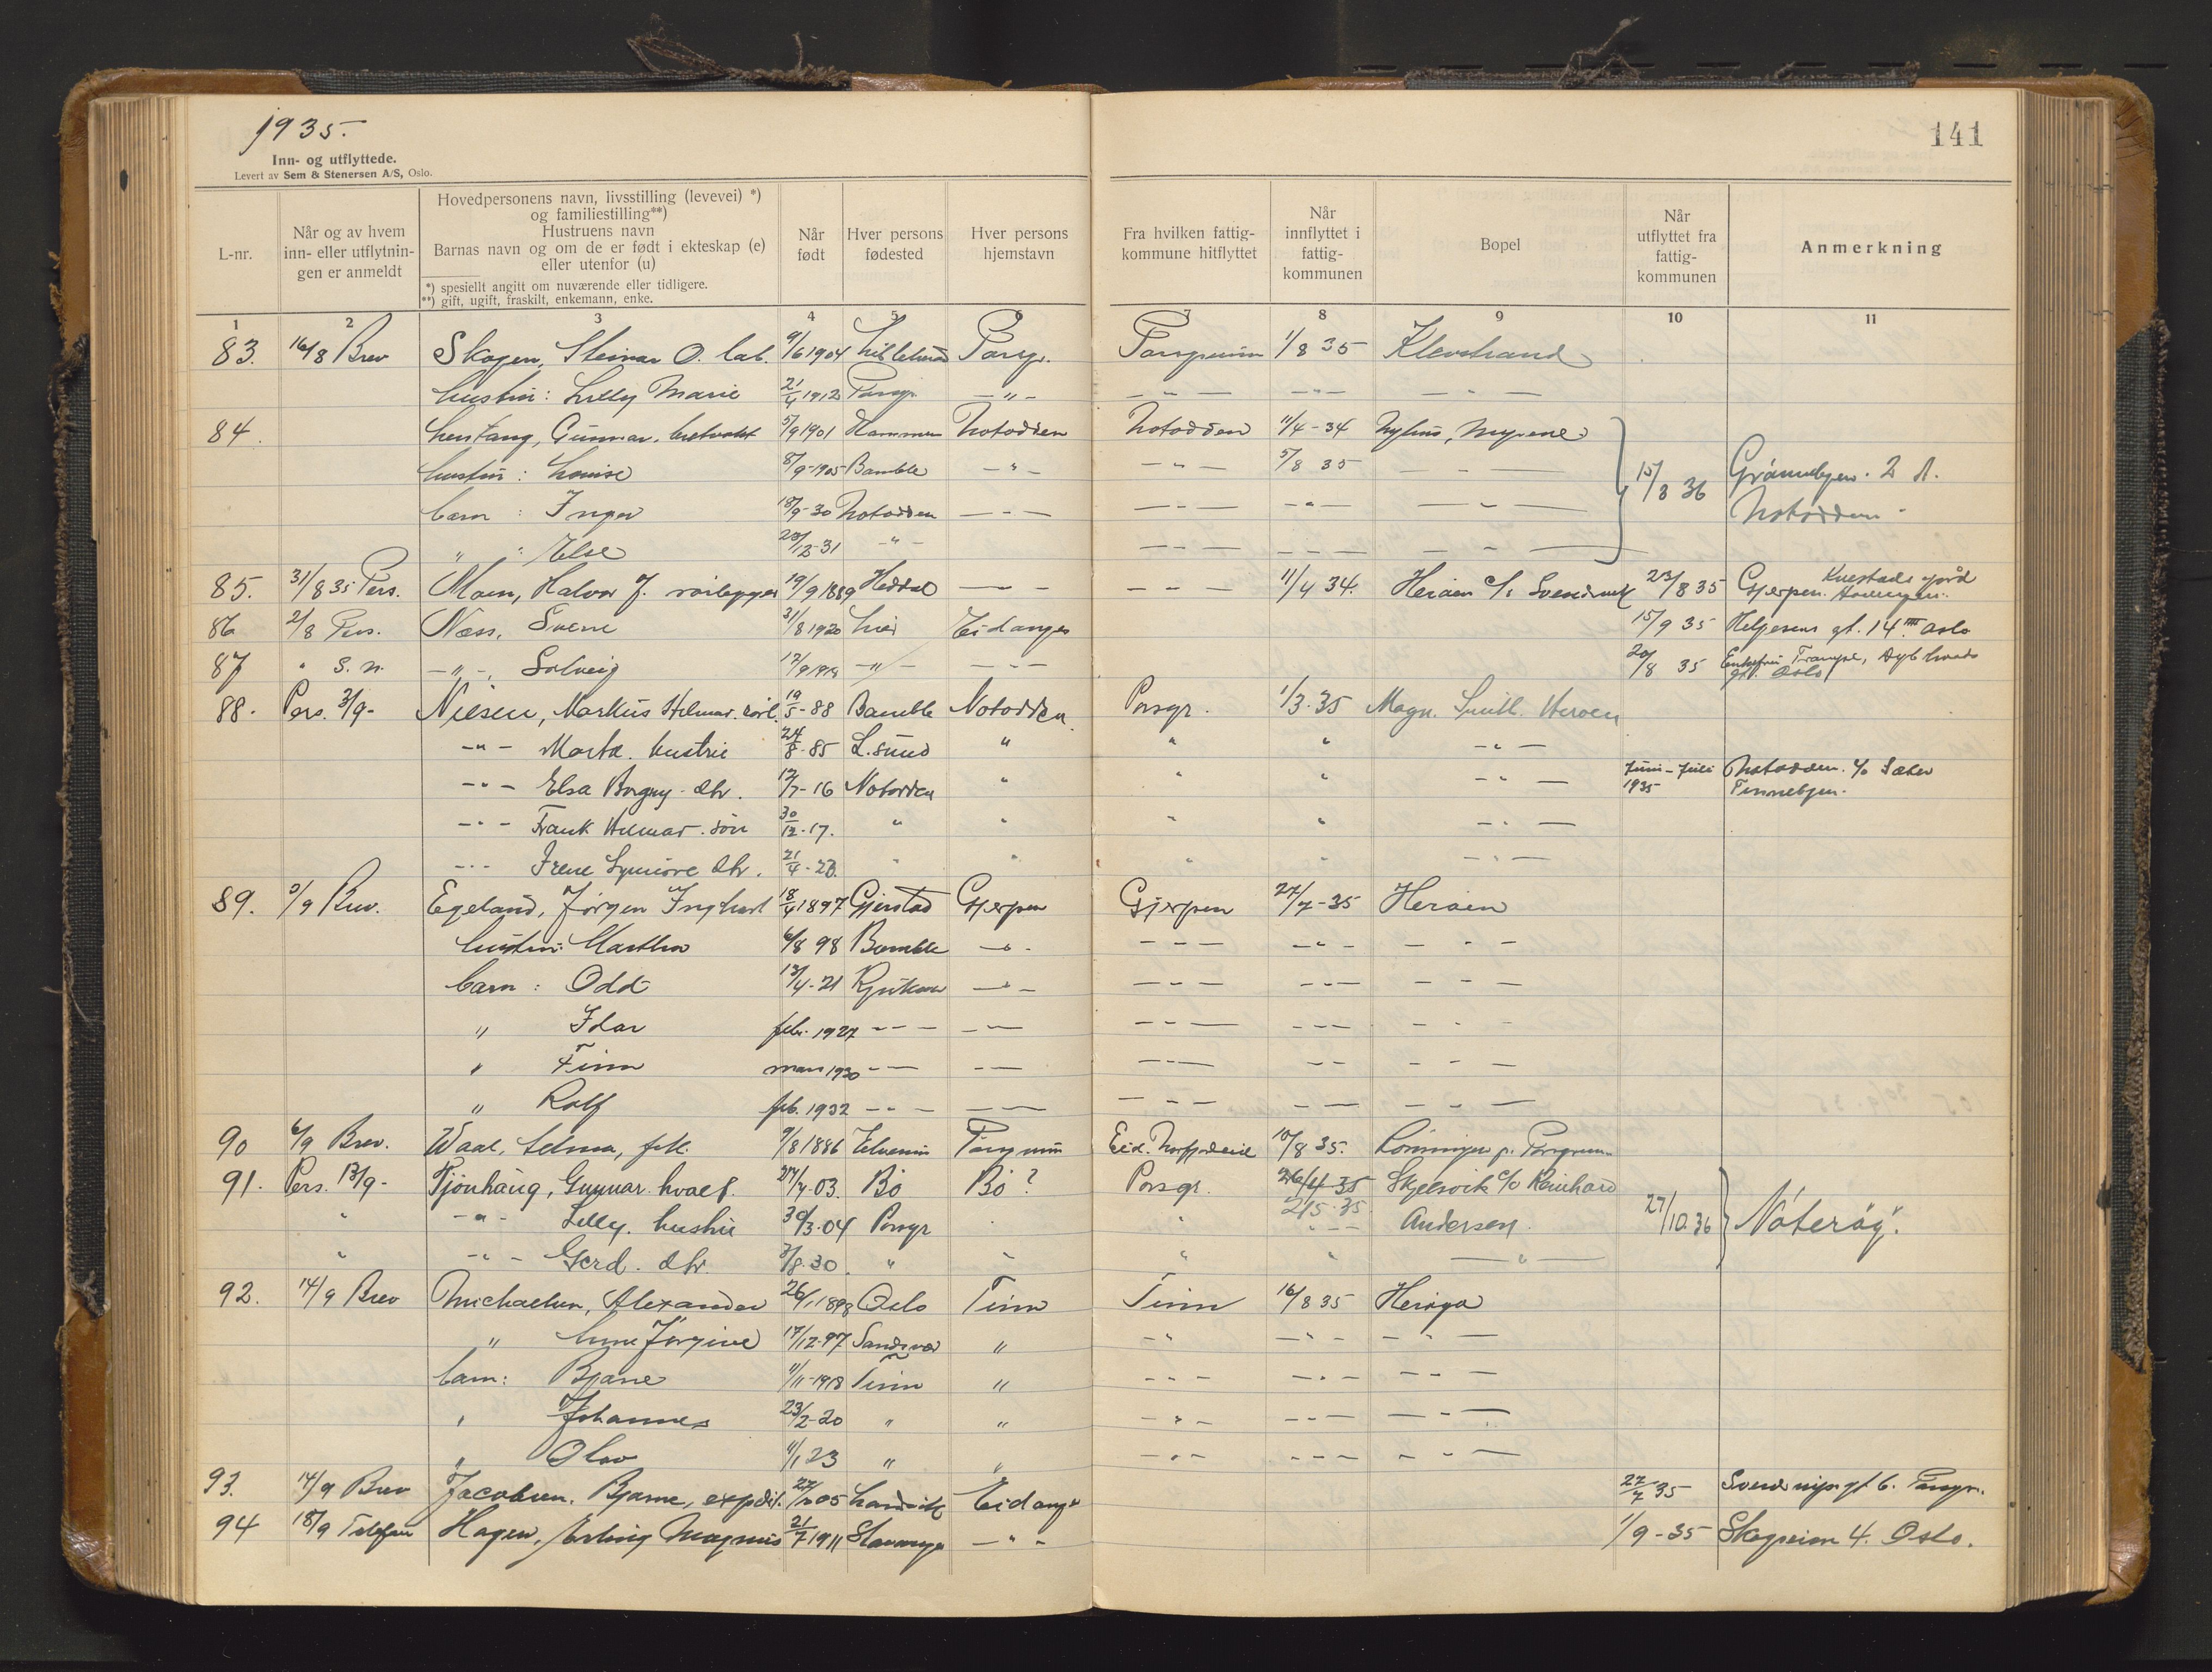 1935.
141
Inn- og utflyttede.
Levert av Sem & Stenersen A/S, Oslo.
L-nr.
Når og av hvem inn- eller utflytnin-gen er anmeldt
Hovedpersonens navn, livsstilling (levevei) *)
og familiestilling**)
Hustruens navn
Barnas navn og om de er født i ekteskap (e)
eller utenfor (u)
*) spesielt angitt om nuværende eller tidligere.
**) gift, ugift, fraskilt, enkemann, enke.
Når født
Hver persons fødested
Hver persons hjemstavn
Fra hvilken fattig-kommune hitflyttet
Når innflyttet i fattig-kommunen
Bopel
Når utflyttet fra fattig-kommunen
Anmerkning
1 2 3 4 5 6 7 8 9 10 11
83. 16/8 Brev Skogen, Steinar O. lab. 9/6 1904 Porsgr. Porsgrunn 1/8 35 Klevstrand
hustru: Lilly Marie 21/4 1912 Porsgr. — " — — " — — " — — " —
84. Gunnar 5/9 1901 Notodden Notodden 11/4-34 Myrene
hustru: Louise 8/9-1905 Bamble — " — — " — 5/8 35 — " —
barn: Inger 18/9-30 Notodden — " — — " — — " — — " — 15/8 36 Grønnebyen. 2 Notodden
" : Else 28/12-31 — " — — — — — — — — — —
85. 31/8 35 Pers. Moen, Halvor J. rørlegger 19/9 1889 Heddal — " — — — — 11/4 34. Herøen c/o 23/8 35 Gjerpen.
86 2/8 Pers. Næss, Sverre 31/8 1920 Lier Eidanger 15/9 35 Helgesens gt. 14 III Oslo
87 " S. n. — " —, Solveig — " — — — — 20/8 35 Enkefru Oslo
88. Pers. 3/9- Nilsen, Markus Hilmar. rørl. 19/5-88 Bamble Notodden Porsgr. 1/3.35 Magn. Herøen
— " — Marta. hustru 24/8-85 L.sund " " " — " —
— " — Elsa Borgny dtr. 12/7-16 Notodden " " " — " — Juni-Juli 1935 Notodden. c/o Sæter Tinnebyen.
— " — Frank Hilmar. søn 30/12-17. " " " " — " —
— " — Irene Synnøve dtr. 21/4-23. " " " " — " —
89. 5/9 Brev. Egeland, Jørgen Inghart 18/4 1897 Gjerstad Gjerpen Gjerpen 27/7-35 Herøen
hustru: Marthea 6/8 98 Bamble — " — — — — — " — — " —
barn: Odd 13/4-21 Rjukan — " — — — — — — — — — —
" Idar feb. 1927 — — — — — — — — — — — — — —
" Finn mars 1930 — — — — — — — — — — — —
" Rolf feb. 1932 — — — — — — — — — — — — — —
90 6/9 Brev. Waal, Selma, frk. 9/8 1886 Elverum Porsgrunn Eid. Nordfjordeid 10/8 35. p. Porsgrunn
91. Pers. 13/9- Tjønhaug, Gunnar. hvalf. 24/7-03. Bø Bø? Porsgr. 26/4 35 Skjelsvik c/o Reinhard
" — " — Lilly. hustru 30/3-04 Porsgr " 2/5.35. Andersen. 27/10.36 "Nøterøy".
" — " — Gerd. dtr. 3/8.30. " " " " — " —
92. 14/9 Brev Michaelsen, Alexander 26/1 1898 Oslo Tinn Tinn 16/8 35 Herøya
" Anne Jørgine 17/12-97 Sandsvær " — " — " — — " —
barn: Bjarne 11/11-1918 Tinn " — — — — " — — — —
" Johannes 23/2-20 " " — " — — — — — — —
" Olav 11/1 23 " " — — — — — — — — —
93. 14/9 Brev Jacobsen. Bjarne, exped. 05 Landvik Eidanger 27/7 35 gt 6. Porsgr.
94 18/9 Telefon Hagen, Erling Magnus 21/7 1911 Stavanger — " — 1/9-35 4. Oslo.